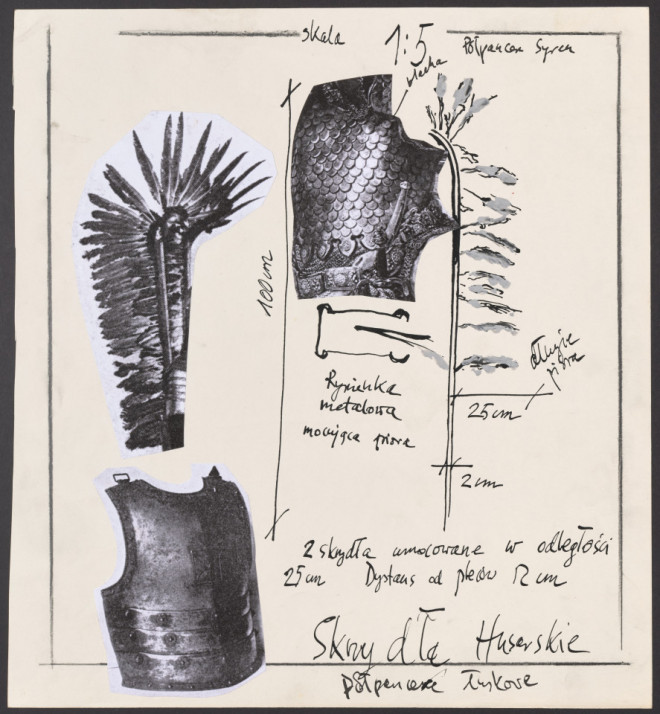 skala 1:5 Półpancerz Syren
blacha
100 cm
długie
pióra
25 cm
Rynienka
metalowa
mocująca pióra
2 cm
2 skrzydła umocowane w odległości
25 cm Dystans od pleców 12 cm
Skrzydła Huserskie
półpancerz łuskowe